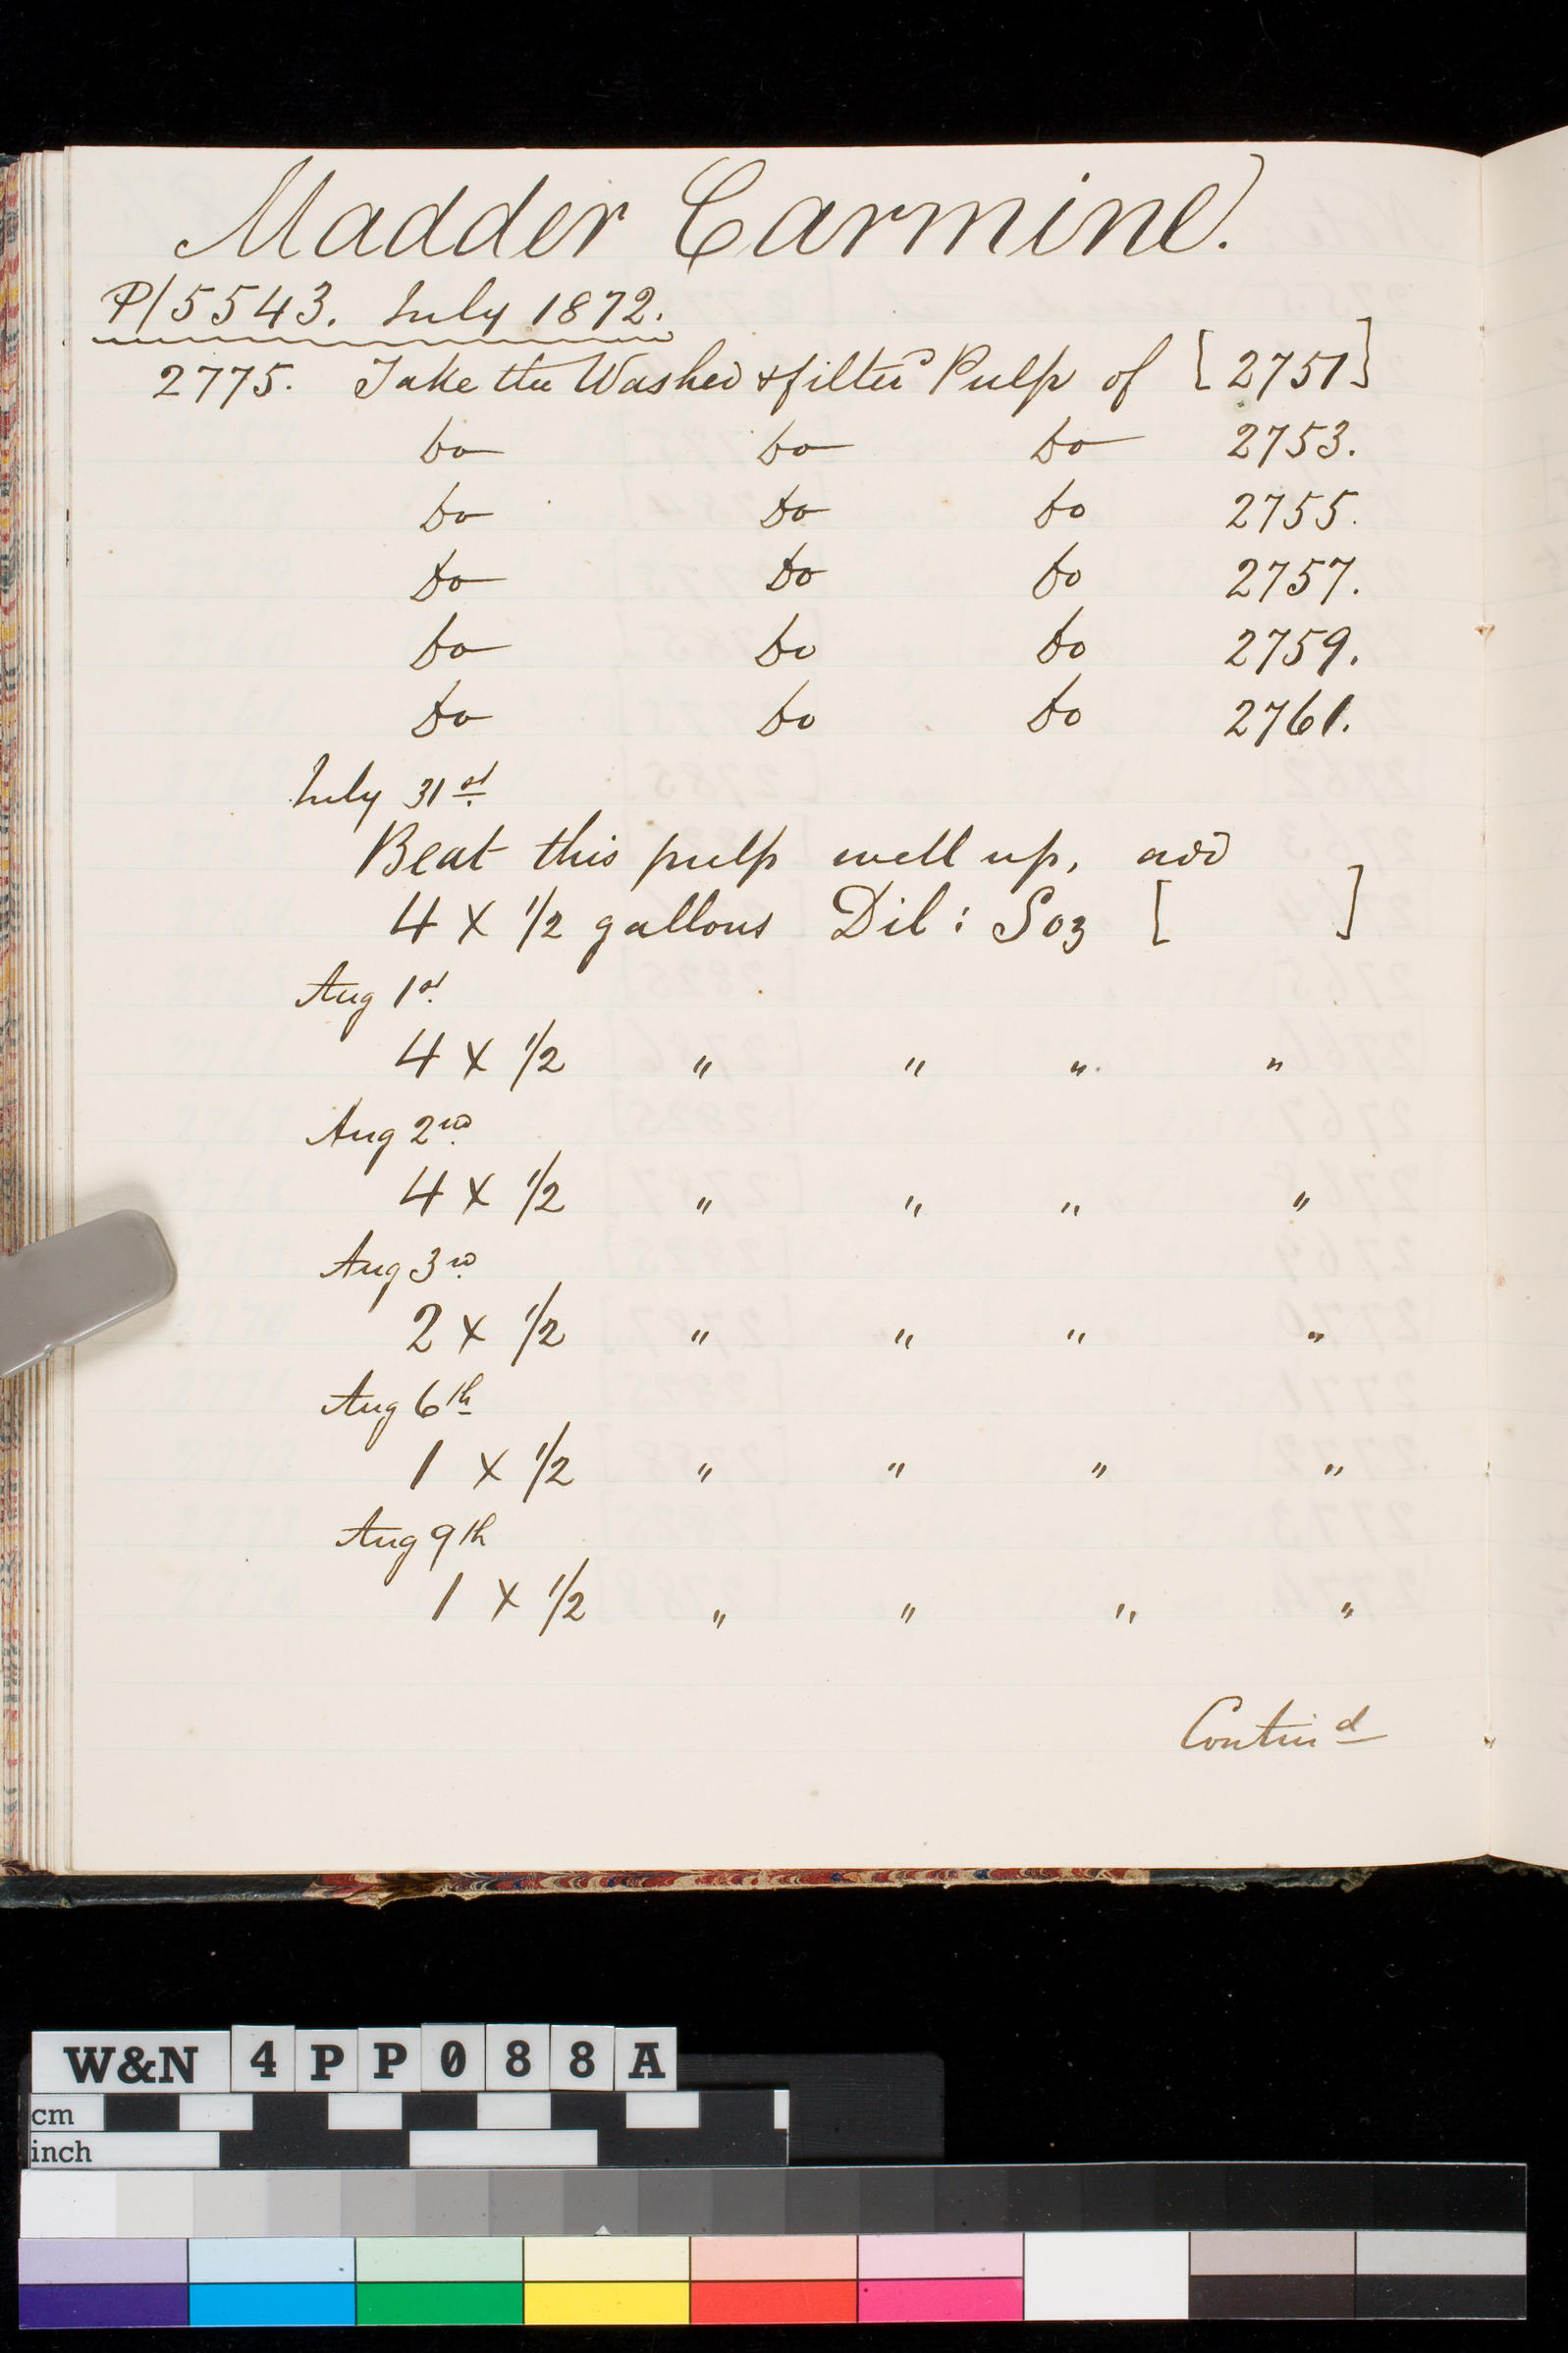 Madder Carmine.
P/5543. July 1872.
2775. Take the Washed & filtd Pulp of [2751]
Do Do Do 2753.
Do Do Do 2755.
Do Do Do 2757.
Do Do Do 2759.
Do Do Do 2761.
July 31st
Beat this pulp well up, add
4 x 1/2 gallons Dil: So3 [ ]
Aug 1st
4 x 1/2 " " " "
Aug 2nd
4 x 1/2 " " " "
Aug 3rd
2 x 1/2 " " " "
Aug 6th
1 x 1/2 " " " "
Aug 9th
1 x 1/2 " " " "
Contind
W&N 4PP088A
cm
inch